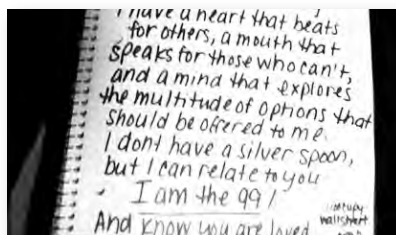 I have a heart that beats
for others, a mouth that
speaks for those who can't,
and a mind that explores
the multitude of options that
should be offered to me.
I dont have a silver spoon,
but I can relate to you
I am the 99 /
And know you are loved